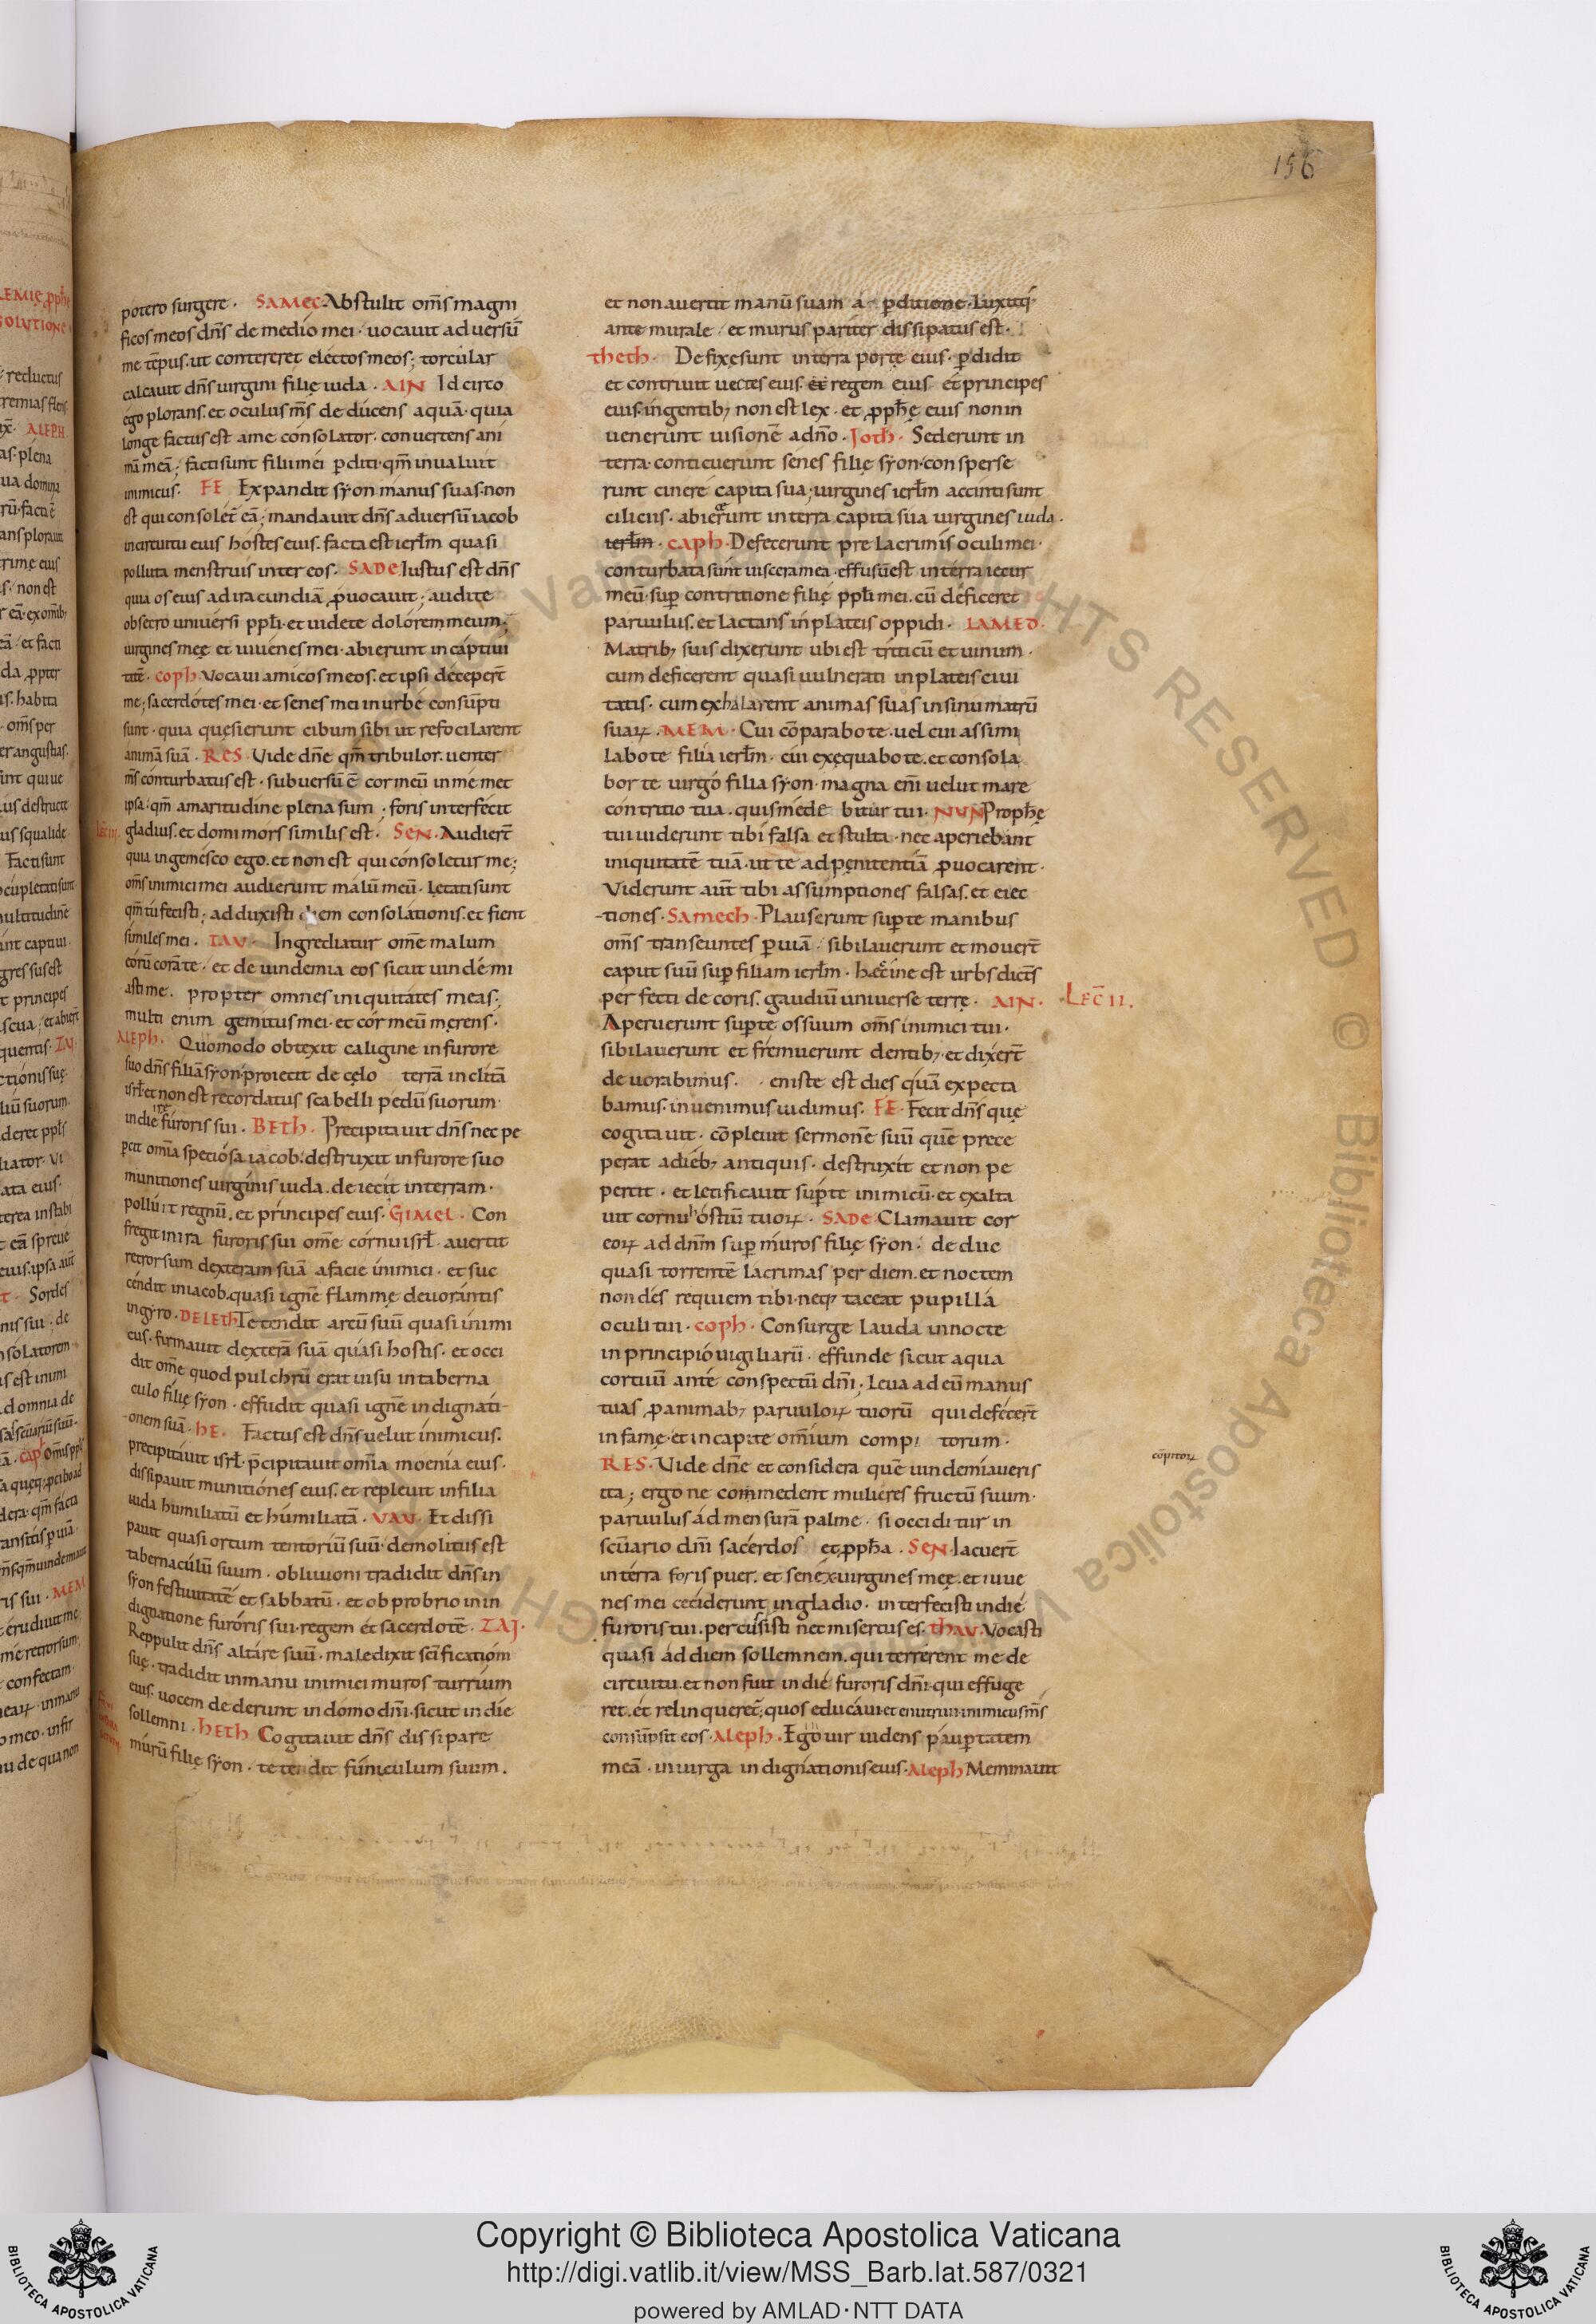 156
potero surgere · SAMEC Abstulit om̄s magni
ficos meos dn̄s de medio mei · uocauit aduersū
me tēpus · ut contereret electos meos ; torcular
calcauit dn̄s uirgini filię iuda · AIN Idcirco
ego plorans · et oculus m̄s deducens aquā · quia
longe factus est a me consolator · conuertens ani
mā meā ; facti sunt filii mei ꝑditi · qm̄ inualuit
inimicus · FE Expandit syon manus suas · non
est qui consolet̄ eā ; mandauit dn̄s aduersū iacob
in circuitu eius hostes eius · facta est ierl̄m quasi
polluta menstruis inter eos · SADE Iustus est dn̄s
quia os eius ad iracundiā ꝓuocaui ; audite
obsecro uniuersi ppl̄i · et uidete dolorem meum ;
uirgines meę et iuuenes mei · abierunt in captiui
tatē · COPH Vocaui amicos meos · et ipsi decepert̄
me ; sacerdotes mei · et senes mei in urbe consūpti
sunt · quia quęsierunt cibum sibi ut refocilarent
animā suā · RES · Vide dn̄e qm̄ tribulor · uenter
m̄s conturbatus est · subuersū ē cor meū in memet
ipsa · qm̄ amaritudine plena sum · foris interfecit
Lec̄ III · gladius · et domi mors similis est · SEN · Audiert̄
quia ingemisco ego · et non est qui consoletur me ;
om̄s inimici mei audierunt malū meū · lętati sunt
qm̄ tu fecisti ; adduxisti diem consolationis · et fient
similes mei · TAV · Ingrediatur om̄e malum
eorū corā te · et deuindemia eos sicut uindemi
asti me · propter omnes iniquitates meas ;
multi enim gemitus mei · et cor meū męrens ·
ALEPH · Quomodo obtexit caligine in furore
suo dn̄s filiā syon · proiecit de cęlo terrā inclitā
isrl̄ · et non est recordatus scabelli pedū suorum
in die furoris sui · BETH · Precipitauit dn̄s nec pe
ꝑcit om̄ia speciosa iacob · destruxit in furore suo
munitiones uirginis iuda · deiecit in terram ·
polluit regnū · et principes eius · GIMEL · Con
fregit in ira furoris sui om̄e cornu isrl̄ · auertit
retrorsum dexteram suā a facie inimici · et suc
cendit in iacob · quasi ignē flammę deuorantis
in gyro · DELETH Tetendit arcū suū quasi inimi
cus · firmauit dexterā suā quasi hostis · et occi
dit om̄e quod pulchrū erat uisu in taberna
culo filię syon · effudit quasi ignē indignati-
-onem suā · HE · Factus est dn̄s uelut inimicus ·
precipitauit isrl̄ · p̄cipitauit om̄ia moenia eius ·
dissipauit munitiones eius · et repleuit in filia
iuda humiliatū et humiliatā · VAV · Et dissi
pauit quasi ortum tentoriū suū · demolitus est
tabernaculū suum · obliuioni tradidit dn̄s in
syon festiuitatē et sabbatū · et obprobrio in in
dignatione furoris sui · regem et sacerdotē · ZAJ ·
Reppulit dn̄s altare suū · maledixit sc̄ificatiōi
suę · tradidit in manu inimici muros turrium
eius · uocem dederunt in domo dn̄i · sicut in die
sollemni · HETH Cogitauit dn̄s dissipare
murū filię syon · tetendit funiculum suum ·
et non auertit manū suam a ꝑditione · Luxitq̄
ante murale · et murus pariter dissipatus est ·
THETH · Defixę sunt in terra portę eius · ꝑdidit
et contriuit uectes eius · et regem eius et principes
eius · in gentib; non est lex · et ꝓph̄ę eius non in
uenerunt uisionē a dn̄o · JOTH · Sederunt in
terra · conticuerunt senes filię syon · consperse
runt cinere capita sua ; uirgines ierl̄m accincti sunt
ciliciis · abiecerunt in terra capita sua uirgines iuda ·
ierl̄m · CAPH · Defecerunt pre lacrimis oculi mei ·
conturbata sunt uiscera mea · effusū est in terra iecur
meū · suꝑ contritione filię ppl̄i mei · cū deficeret
paruulus · et lactans in plateis oppidi · LAMED ·
Matrib; suis dixerunt ubi est triticū et uinum ·
cum deficerent quasi uulnerati in plateis ciui
tatis · cum exhalarent animas suas in sinu matrū
suaꝝ · MEM · Cui cōparabo te · uel cui assimi
labo te filia ierl̄m · cui exęquabo te · et consola
bor te uirgo filia syon · magna eni uelut mare
contritio tua · quis mede bitur tui · NUN Proph̄ę
tui uiderunt tibi falsa et stulta · nec aperiebant
iniquitatē tuā · ut te ad pęnitentiā ꝓuocarent ·
Viderunt aut̄ tibi assumptiones falsas · et eiec
-tiones · SAMECH · Plauserunt suꝑ te manibus
om̄s transeuntes ꝑ uiā · sibilauerunt et mouert̄
caput suū suꝑ filiam ierl̄m · hęccine est urbs dicēs
perfecti decoris · gaudiū uniuerse terrę · AIN · LEC̄ II ·
Aperuerunt suꝑ te os suum om̄s inimici tui ·
sibilauerunt et fremuerunt dentib; · et dixert̄
deuorabimus · en iste est dies quā expecta
bamus · inuenimus uidimus · FE · Fecit dn̄s quę
cogitauit · cōpleuit sermonē suū quē prece
perat a dieb; antiquis · destruxit et non pe
percit · et letificauit suꝑ te inimicū · et exalta
uit cornu hostiū tuoꝝ · SADE Clamauit cor
eoꝝ ad dn̄m suꝑ muros filię syon · deduc
quasi torrentē lacrimas per diem · et noctem
non des requiem tibi · neq; taceat pupilla
oculi tui · COPH · Consurge lauda in nocte
in principio uigiliarū · effunde sicut aqua
cor tuū ante conspectū dn̄i · leua ad eū manus
tuas ꝓ animab; paruuloꝝ tuorū qui defecert̄
in famę · et in capite om̄ium compi torum ·
cōpitoꝝ
RES · Vide dn̄e et considera quē uindemiaueris
ita ; ergone commedent mulieres fructū suum ·
paruulus ad mensurā palme · si occiditur in
scūario dn̄i sacerdos et ꝓph̄a · SEN · Iacuert̄
in terra foris puer · et senex · uirgines meę · et iuue
nes mei ceciderunt in gladio · interfecisti in die
furoris tui · percusisti nec misertus es · THAV · Vocasti
quasi ad diem sollemnem · qui terrerent me de
circuitu · et non fuit in die furoris dn̄i · qui effuge
ret · et relinqueret̄ ; quos educaui · et enutriui · inimicus m̄s
consūpsit eos · ALEPH · Ego uir uidens pauꝑtatem
meā · in uirga indignationis eius · ALEPH Me minauit
Copyright © Biblioteca Apostolica Vaticana
http://digi.vatlib.it/view/MSS_Barb.lat.587/0321
powered by AMLAD·NTT DATA
BIBLIOTECA APOSTOLICA VATICANA
BIBLIOTECA APOSTOLICA VATICANA